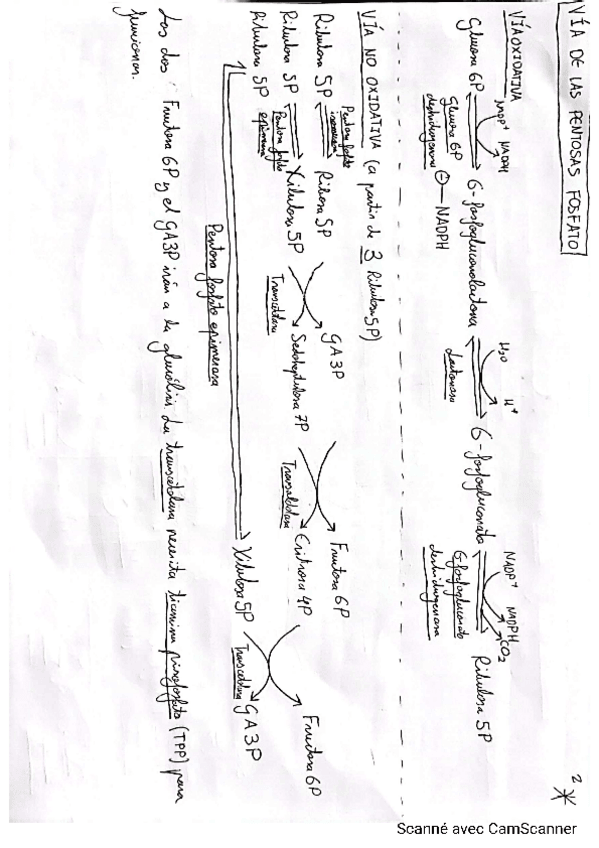 VÍA DE LAS PENTOSAS FOSFATO
2 *
VÍA OXIDATIVA
NADP+ NADPH
H2O H+
NADP+ NADPH CO2
Glucosa 6P 6-fosfogluconolactona 6-fosfogluconato Ribulosa 5P
Glucosa 6P deshidrogenasa
⊖ NADPH
Lactonasa
6-fosfogluconato deshidrogenasa
VÍA NO OXIDATIVA (a partir de 3 Ribulosa 5P)
Ribulosa 5P Pentosa fosfato isomerasa Ribosa 5P GA3P Fructosa 6P
Ribulosa 5P Pentosa fosfato epimerasa Xilulosa 5P Transcetolasa Sedoheptulosa 7P Transaldolasa Eritrosa 4P Fructosa 6P
Ribulosa 5P Xilulosa 5P Transcetolasa GA3P
Pentosa fosfato epimerasa
Las dos Fructosa 6P y el GA3P irán a la glucólisis. La transcetolasa necesita tiamina pirofosfato (TPP) para
funcionar.
Scanné avec CamScanner